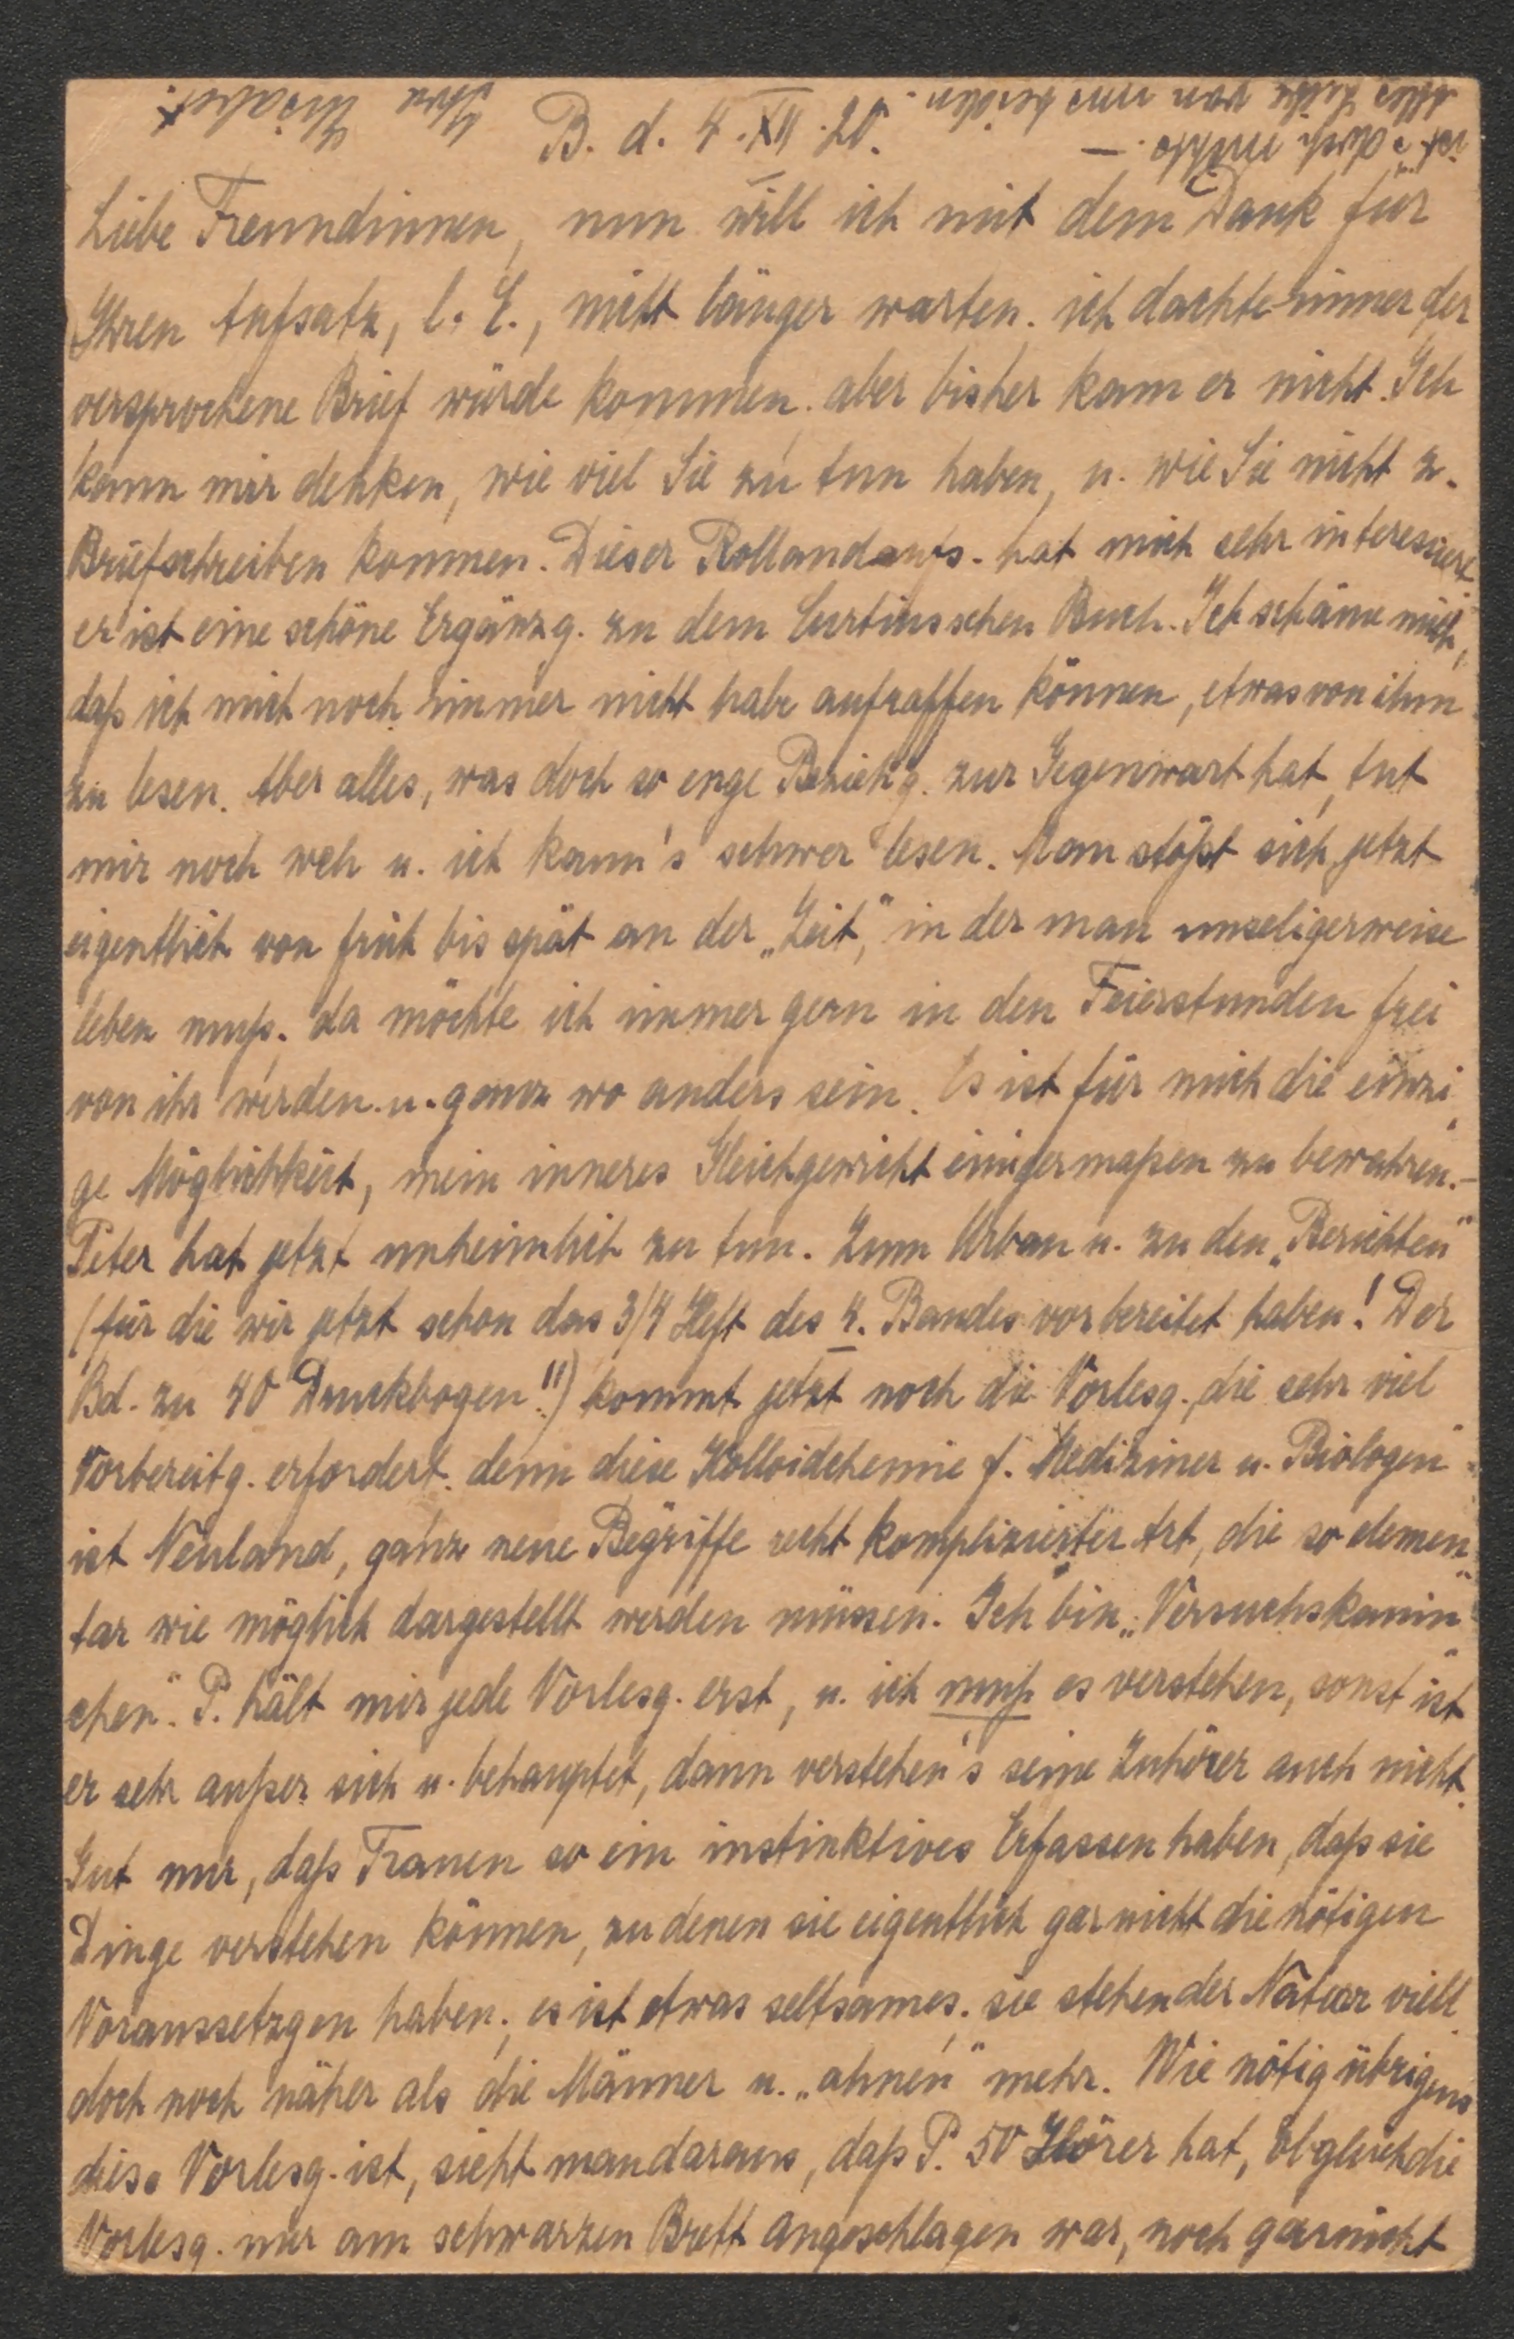 B. d. 4. XII. 20.
Liebe Freundinnen, nun will ich mit dem Dank für
Ihren Aufsatz, l. E., nicht länger warten. ich dachte immer, der
versprochene Brief würde kommen. aber bisher kam er nicht. Ich
kann mir denken, wie viel Sie zu tun haben, u. wie Sie nicht z.
Briefschreiben kommen. Dieser Rollandaufs. hat mich sehr interessiert
er ist eine schöne Ergänzg. zu dem Curtiusschen Buch. Ich schäme mich,
daß ich mich noch immer nicht habe aufraffen können, etwas von ihm
zu lesen. Aber alles, was doch so enge Beziehg. zur Gegenwart hat, tut
mir noch weh u. ich kann's schwer lesen. Man stößt sich jetzt
eigentlich von früh bis spät an der „Zeit," in der man unseligerweise
leben muß. da möchte ich immer gern in den Feierstunden frei
von ihr werden u. ganz wo anders sein. Es ist für mich die einzi
ge Möglichkeit, mein inneres Gleichgewicht einigermaßen zu bewahren.-
Peter hat jetzt unheimlich zu tun. Zum Urban u. zu den „Berichten"
(für die wir jetzt schon das 3/4 Heft des 4. Bandes vorbereitet haben! Der
Bd. zu 40 Druckbogen!!) kommt jetzt noch die Vorlesg., die sehr viel
Vorbereitg. erfordert. denn diese Kolloidchemie f. Mediziner u. Biologen
ist Neuland, ganz neue Begriffe recht komplizierter Art, die so elemen
tar wie möglich dargestellt werden müssen. Ich bin „Versuchskanin
chen". P. hält mir jede Vorlesg. erst, u. ich muß es verstehen, sonst ist
er sehr außer sich u. behauptet, dann verstehen's seine Zuhörer auch nicht.
Gut nur, daß Frauen so ein instinktives Erfassen haben, daß sie
Dinge verstehen können, zu denen sie eigentlich gar nicht die nötigen
Voraussetzgen haben; es ist etwas seltsames. sie stehen der Natur viell.
doch noch näher als die Männer u. „ahnen" mehr. Wie nötig übrigens
diese Vorlesg. ist, sieht man daraus, daß P. 50 Hörer hat, obgleich die
Vorlesg. nur am schwarzen Brett angeschlagen war, noch garnicht
ist doch nichts. —
Alles Liebe von uns beiden.
Ihre